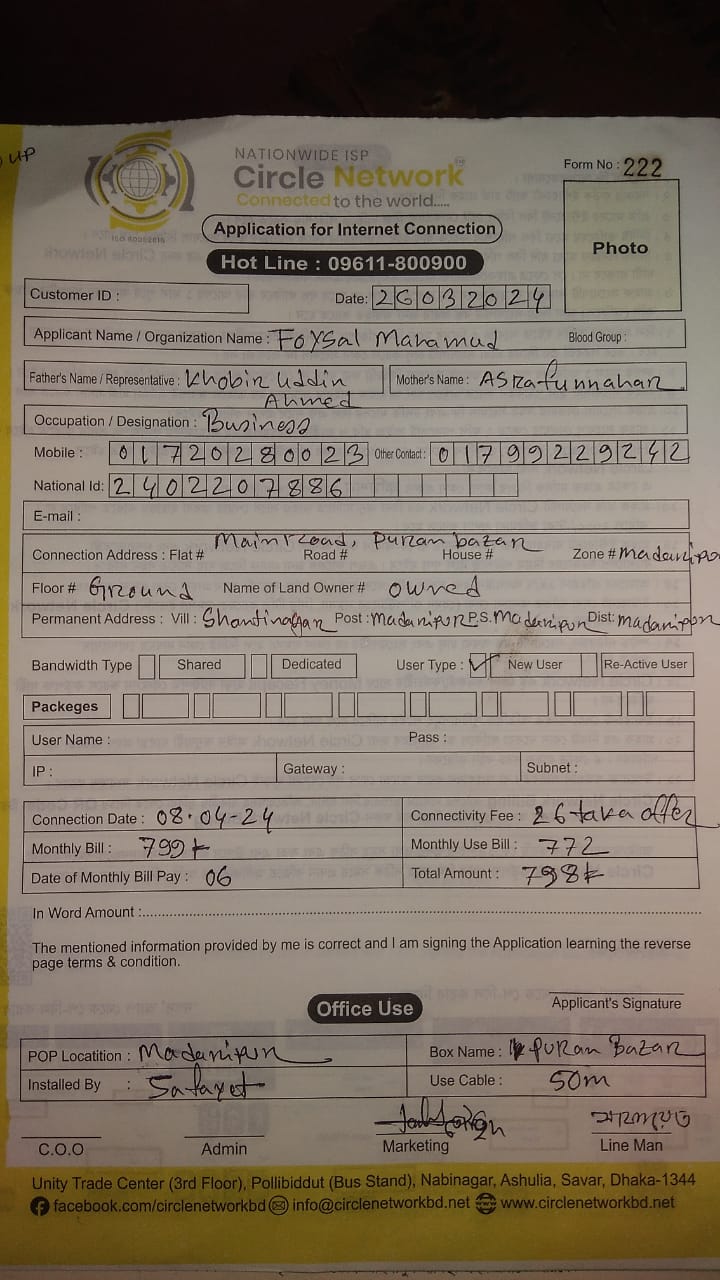 UP
NATIONWIDE ISP
Circle Network
Connected to the world.....
Form No : 222
Application for Internet Connection
Photo
Hot Line : 09611-800900
Customer ID :
Date: 26032024
Applicant Name / Organization Name : Foysal Mahamud Blood Group :
Father's Name / Representative : Khobir Uddin Ahmed Mother's Name : ASRafunnahar
Occupation / Designation : Business
Mobile : 01720280023 Other Contact : 01799229242
National Id: 2402207886
E-mail :
Main road, Puran bazar
Connection Address : Flat # Road # House # Zone # madaripo
Floor # Ground Name of Land Owner # owned
Permanent Address : Vill : Shantinagar Post : Madaripur P.S. Madaripur Dist: madaripor
Bandwidth Type Shared Dedicated User Type : ✓ New User Re-Active User
Packeges
User Name : Pass :
IP : Gateway : Subnet :
Connection Date : 08.04-24 Connectivity Fee : 26 taka offer
Monthly Bill : 799 Monthly Use Bill : 772
Date of Monthly Bill Pay : 06 Total Amount : 798
In Word Amount :
The mentioned information provided by me is correct and I am signing the Application learning the reverse
page terms & condition.
Applicant's Signature
Office Use
POP Locatition : Madaripur Box Name : Puran Bazar
Installed By : Safayet Use Cable : 50m
C.O.O Admin Marketing Line Man
Unity Trade Center (3rd Floor), Pollibiddut (Bus Stand), Nabinagar, Ashulia, Savar, Dhaka-1344
facebook.com/circlenetworkbd info@circlenetworkbd.net www.circlenetworkbd.net